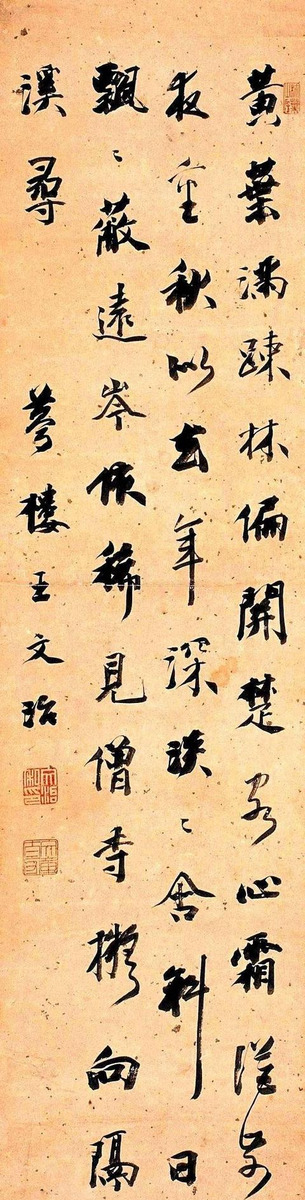 黃葉滿疎林偏開楚客心霜從前
夜重秋似去年深淡〻含斜日
飄〻蔽遠岑依稀見僧寺擬向隔
溪尋
夢樓王文治